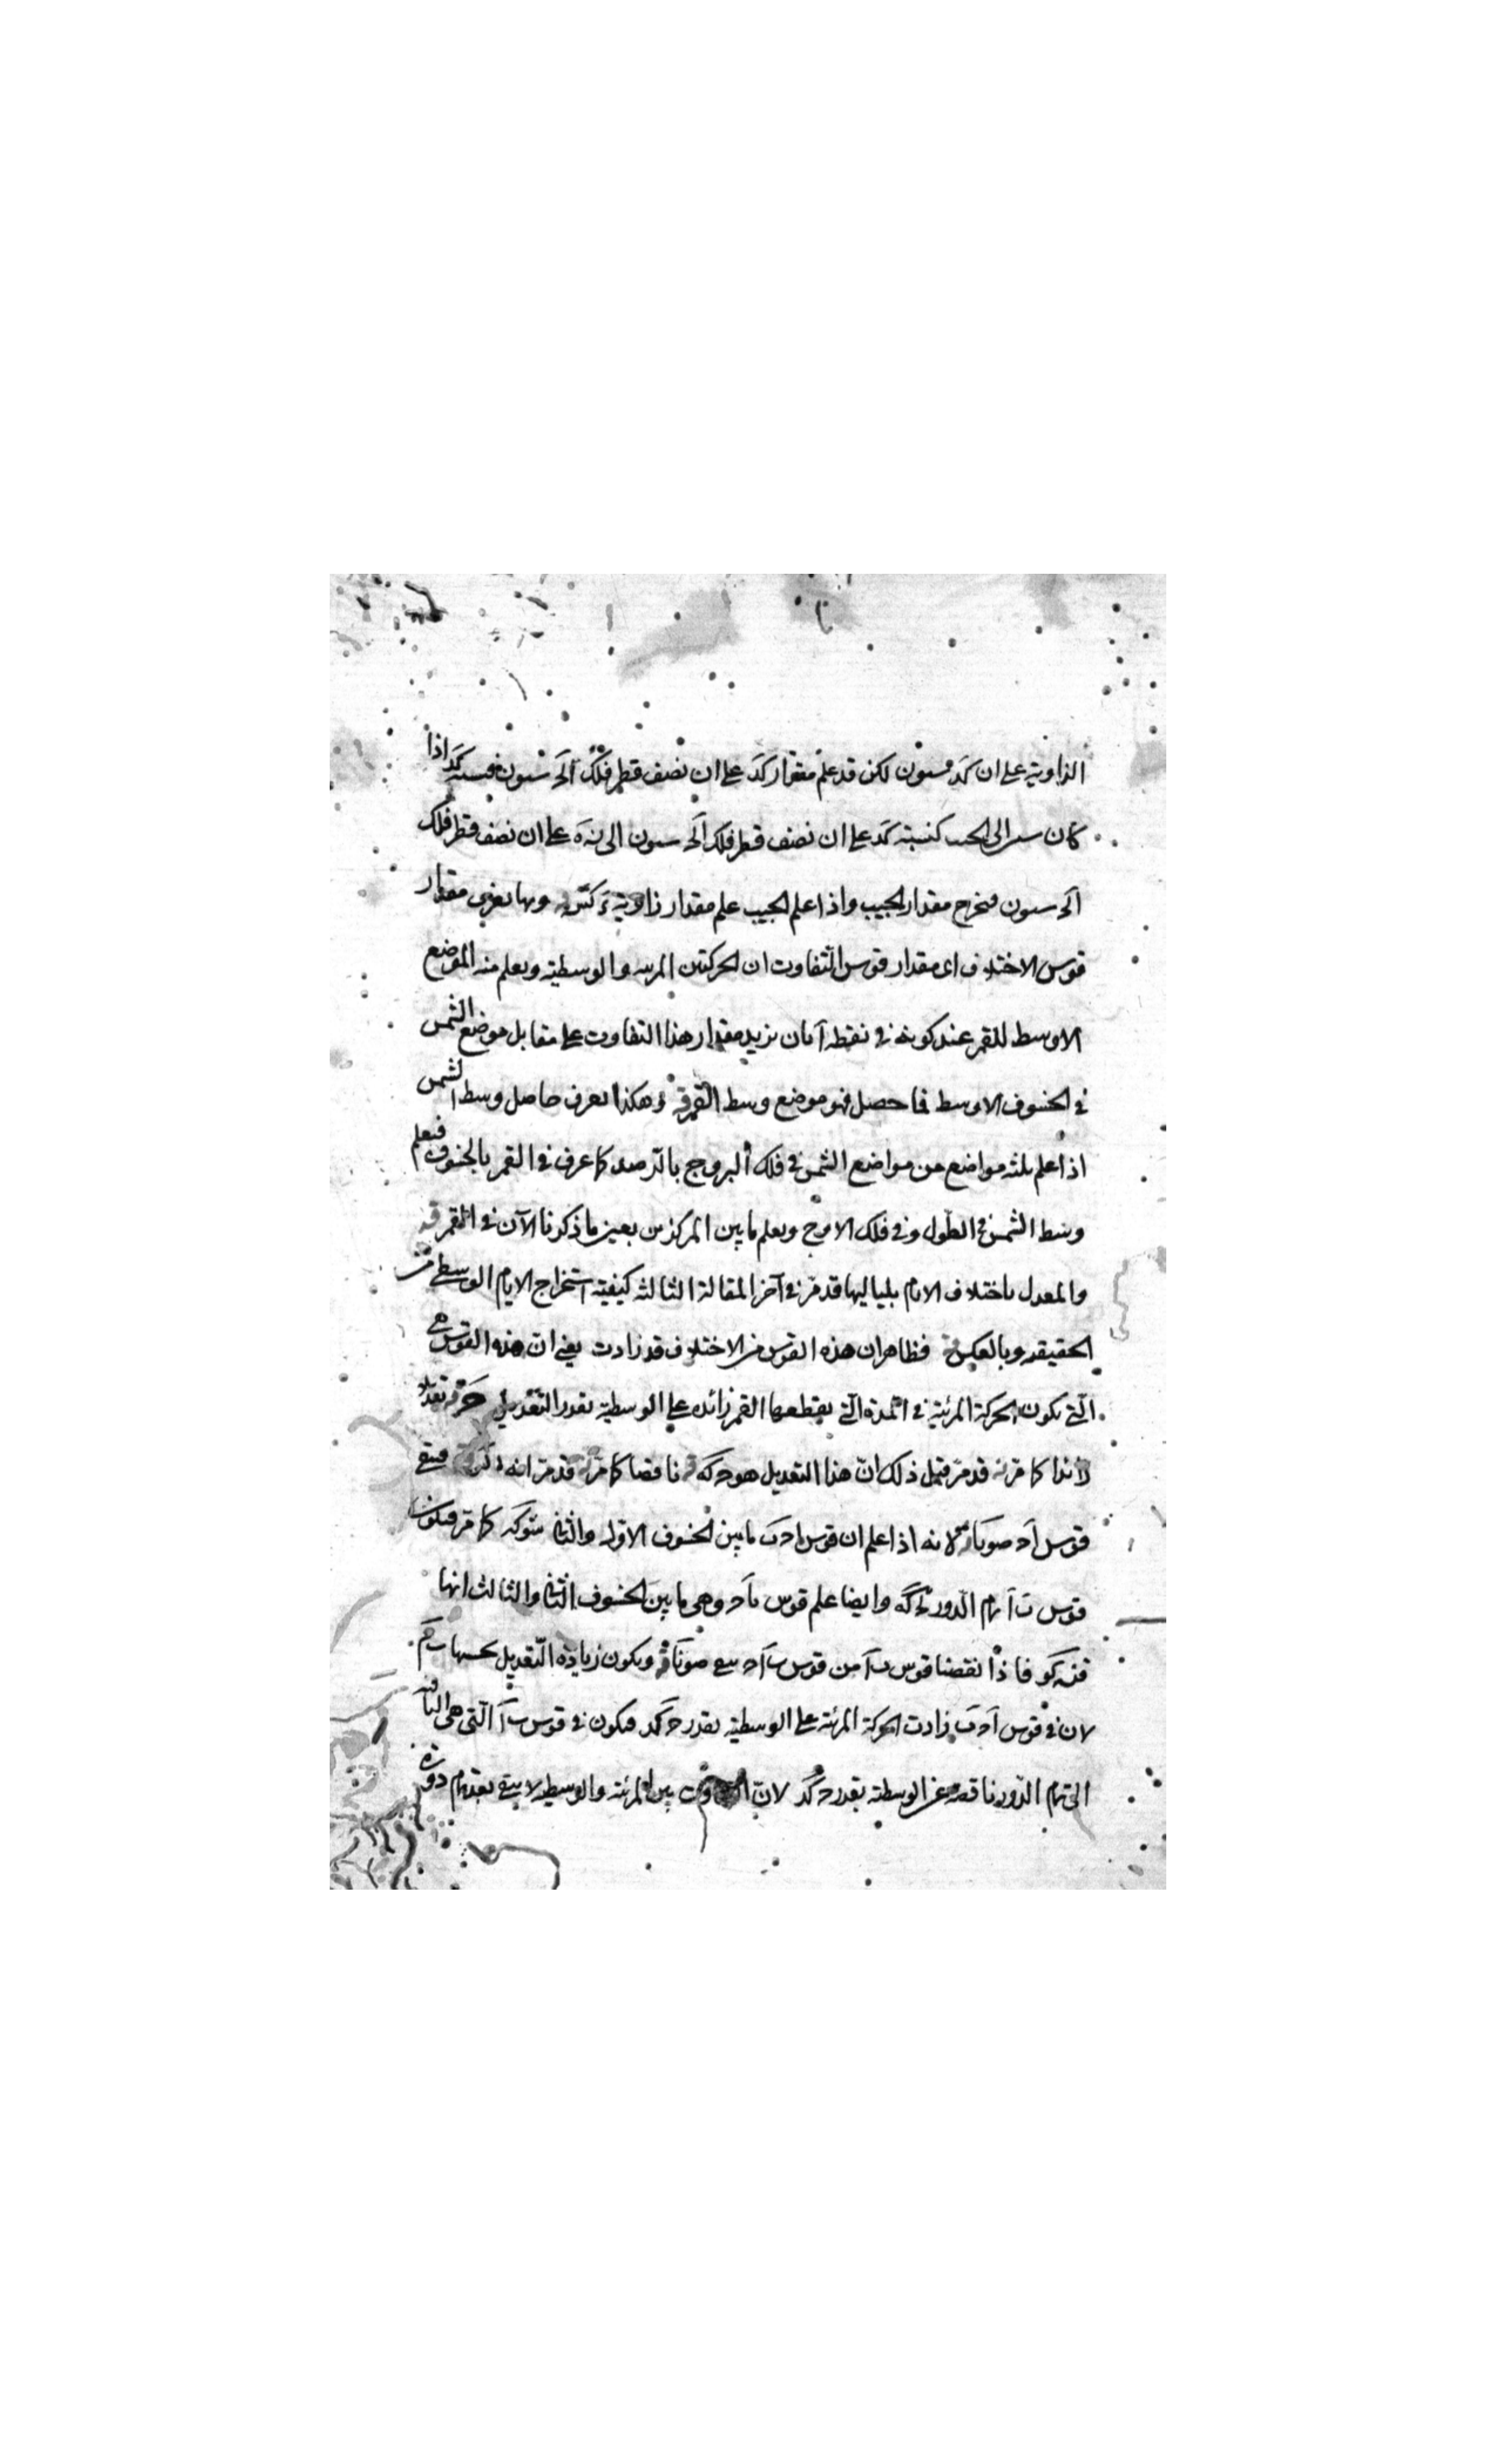 الزاوية على ان كد ستون لكن قد علم مقدار كد على ان نصف قطر فلك الح ستون فنسبة كد اذا
كان ستين الى الجيب كنسبة كد على ان نصف قطر فلك الح ستون الى نه على ان نصف قطر فلك
الح ستون فيخرج مقدار الجيب واذا علم الجيب علم مقدار زاوية وبها يعرف مقدار
قوس الاختلاف اى مقدار قوس التفاوت ان الحركتين المرئية والوسطية ويعلم منه الموضع
الاوسط للقمر عند كونه فى نقطة آ بان يزيد مقدار هذا التفاوت على مقابل موضع الشمس
فى الخسوف الاوسط فما حصل فهو موضع وسط القمر وهكذا يعرف حاصل وسط الشمس
اذا علم ثلثة مواضع من مواضع الشمس فى فلك البروج بالرصد كما عرف فى القمر بالخسوف فيعلم
وسط الشمس فى الطول وفى فلك الاوج ويعلم ما بين المركزين بعين ما ذكرنا الآن فى القمر قه
والمعدل باختلاف الايام بلياليها قد مر فى آخر المقالة الثالثة كيفية استخراج الايام الوسطى من
الحقيقية وبالعكس فظاهر ان هذه القوس من الاختلاف قد زادت يعنى ان هذه القوس هى
التى تكون الحركة المرئية فى المدة التى يقطعها القمر زائدة على الوسطية بقدر التعديل
زائدا كما مر قد مر قبل ذلك ان هذا التعديل هو ناقصا كما مر قد مر انه فبقى
قوس اح لانه اذا علم ان قوس احب ما بين الخسوف الاول والثانى كما مر فيكون
قوس ب آ تمام الدور وايضا علم قوس باح وهى ما بين الخسوف الثانى والثالث انها
فاذا نقصنا قوس ب آ من قوس باح بقى ويكون زيادة التعديل بحسبها
لان فى قوس احب زادت الحركة المرئية على الوسطية بقدر فيكون فى قوس ب آ التى هى الباقية
الى تمام الدور ناقصة عن الوسطية بقدر لان التفاوت بين المرئية والوسطية لا يبقى بعد تمام دورة